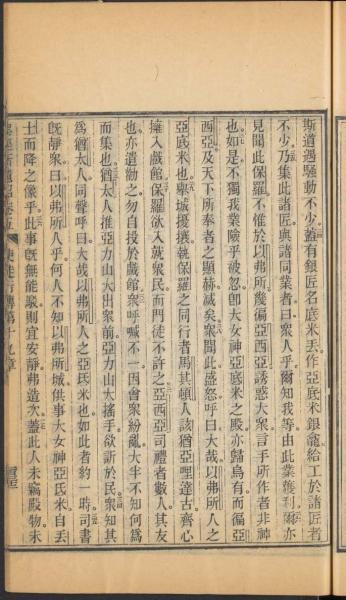 斯道遇騷動不少蓋有銀匠名底米丟作亞底米銀龕給工於諸匠者
不少乃集此諸匠與諸同業者曰衆人乎爾知我等由此業獲利爾亦
見聞此保羅不惟於以弗所幾徧亞西亞誘惑大衆言手所作者非神
也如是不獨我業險乎被忽卽大女神亞底米之殿亦歸烏有而徧亞
西亞及天下所奉者之顯赫減矣衆聞此盛怒呼曰大哉以弗所人之
亞底米也舉城擾攘執保羅之同行者馬其頓人該猶亞哩達古齊心
擁入戲館保羅欲入就衆民而門徒不許之亞西亞司禮者數人其友
也亦遣勸之勿自投於戲館衆呼喊不一因會衆紛亂大半不知何爲
而集也猶太人推亞力山大出衆前亞力山大搖手欲訴於民衆知其
爲猶太人同聲呼曰大哉以弗所人之亞氐米也如此者約一時司書
旣靜衆曰以弗所人乎何人不知以弗所城供事大女神亞氐米自丟
士而降之像乎此事旣無能駁則宜安靜弗造次蓋此人未竊殿物未
使徒行傳第十九章